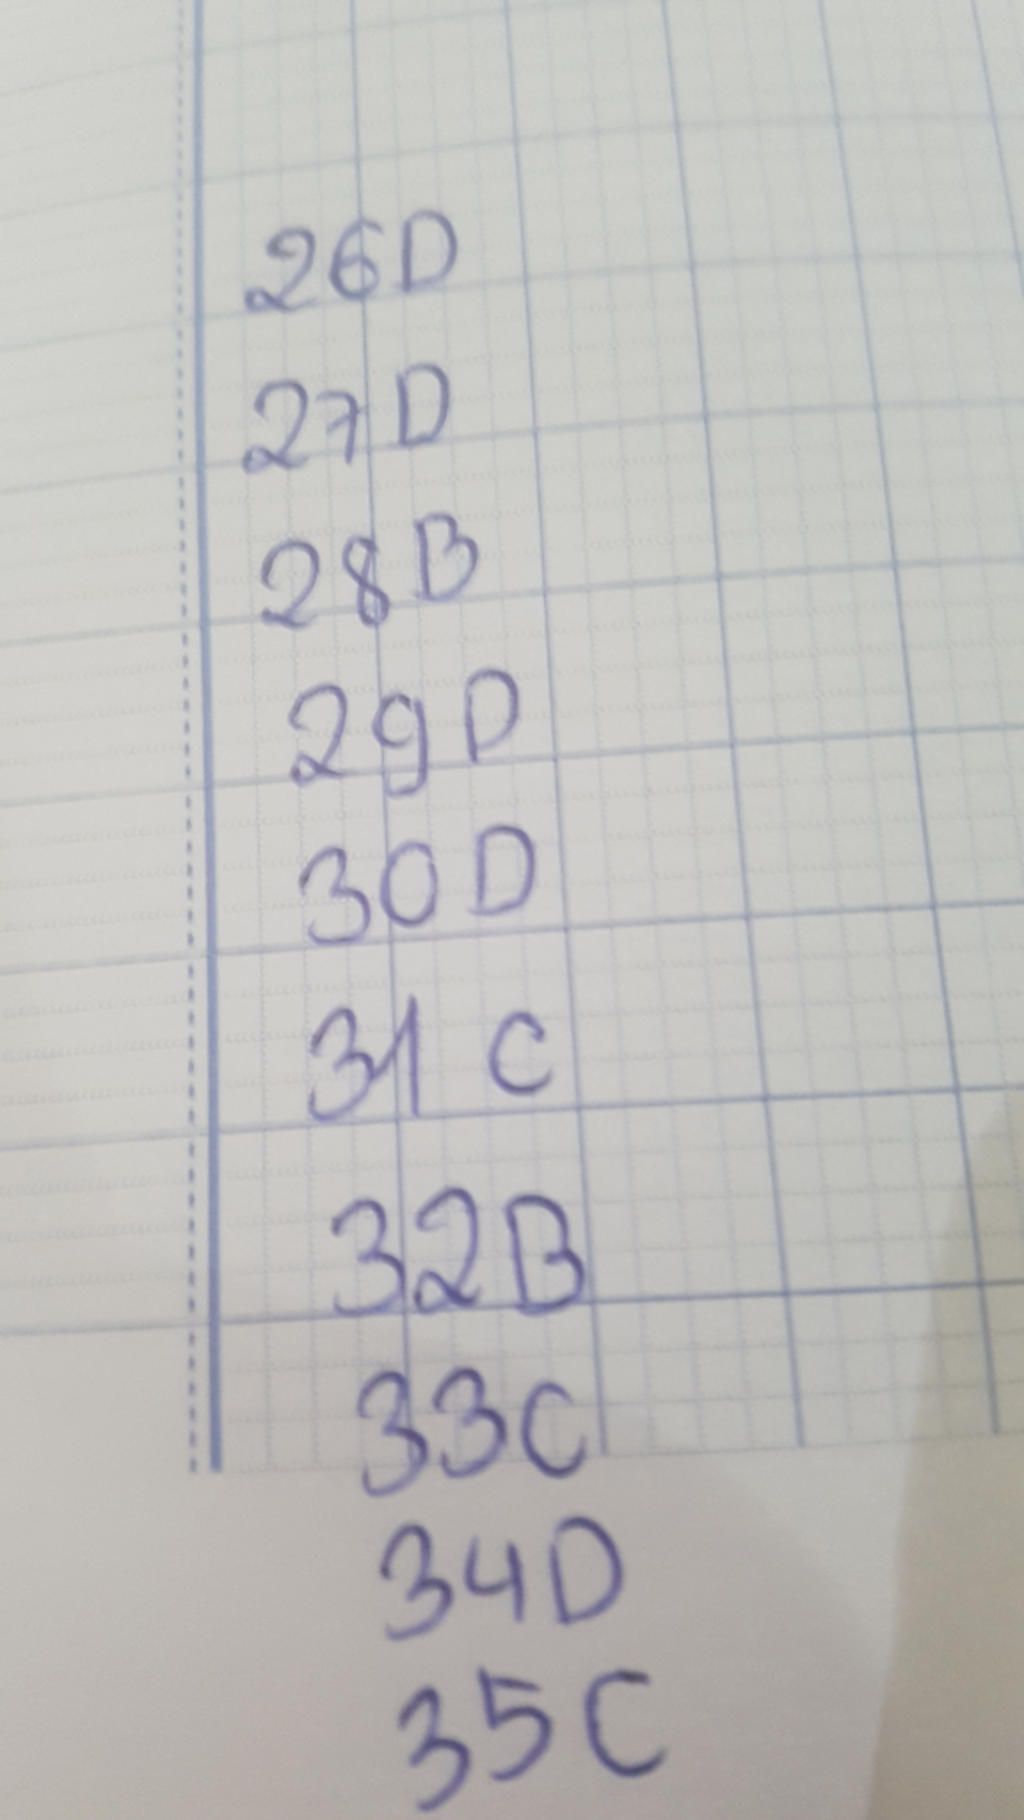 26D
27D
28B
29D
30D
31 C
32B
33C
34D
35C